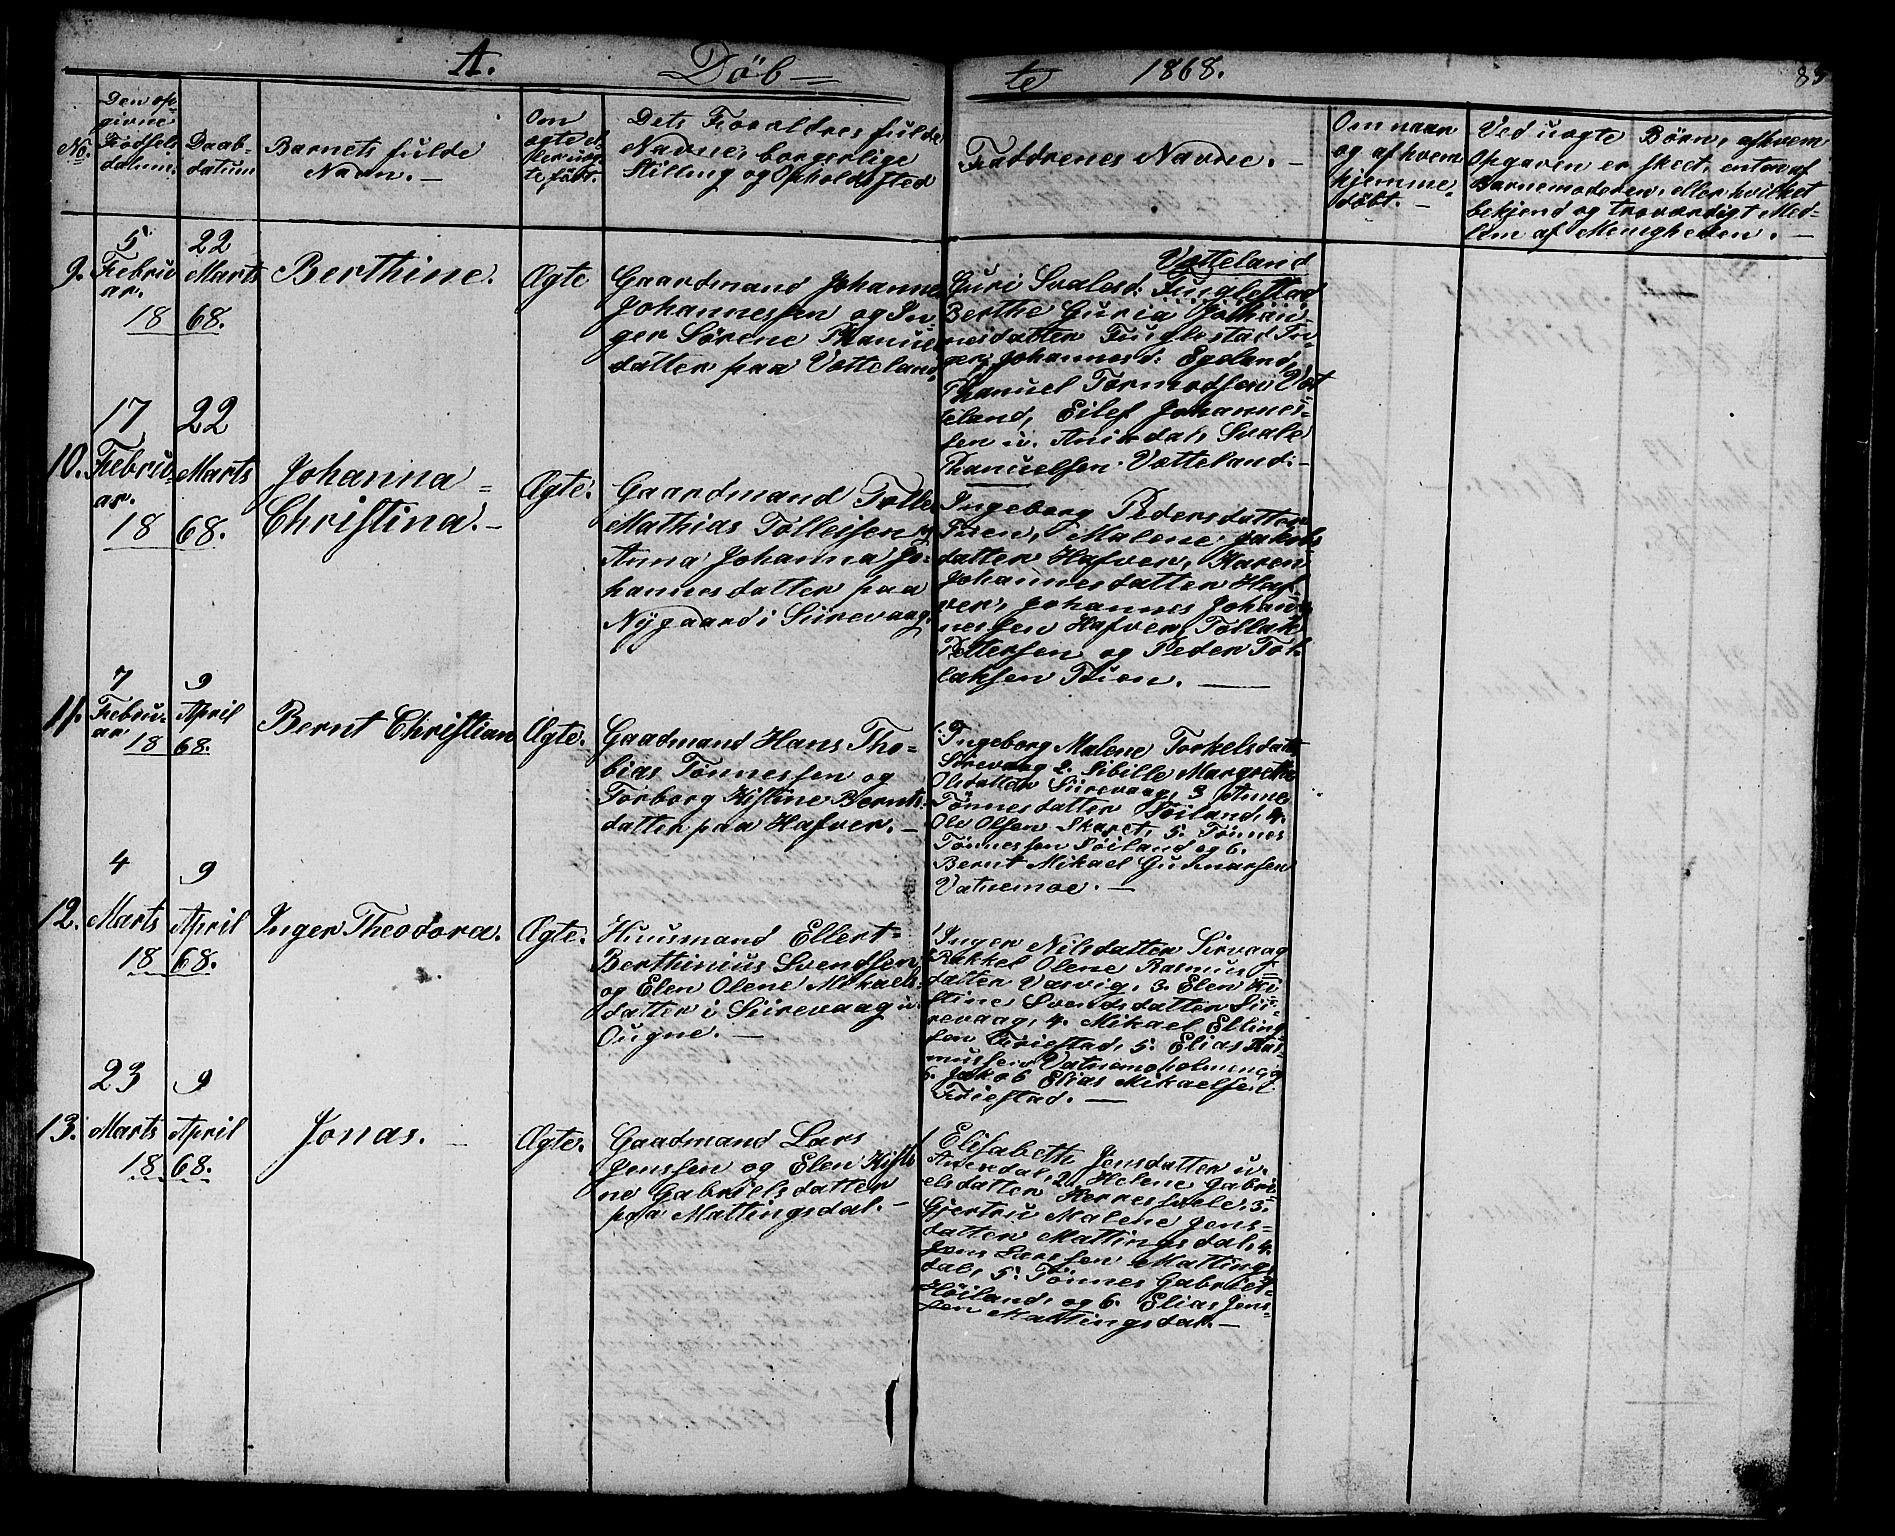 A. Döb- te 1868. 83
No.
Den op-
givne
Fødsels
datum.
Daab-
datum
Barnets fulde
Navn. -
Om
ægte el-
ler uæg-
te født.
Dets Forældres fulde
Navne, borgerlige
Stilling og Opholdssted
Faddrenes Navne. -
Om naar
og af hvem
hjemme-
døbt. -
Ved uægte Børn, af hvem
Opgaven er skeet, enten af
Barnemoderen, eller hvilket
bekjend og troværdigt Med-
lem af Menigheden. -
9.
5
Febru
ar.
18
22
Marts
68.
Berthine.
Ægte
Gaardmand Johannes
Johannessen og In-
ger Sørene Thanuels
datter paa Votteland.
Votteland
Guri Svalesd. Fuglestad
Berthe Guria Johan-
nesdatter Fuglestad In-
ger Johannesd. Egeland,
Thanuel Tormodsen Vot
teland, Eilef Johannes-
sen u. Anirdal, Svale
Thanuelsen Votteland. -
10.
17
Febru-
ar.
18
22
Marts
68.
Johanna =
Christina. -
Ægte.
Gaardmand Tolle
Mathias Tolleisen og
Anna Johanna Jo-
hannesdatter paa
Nygaard i Siirevaag.
Ingeborg Pedersdatter
Tuen, Malene Jakobs-
datter Hafver, Karen
Johannesdatter Haf-
ver, Johannes Johan-
nessen Hafver, Tollak
Pettersen og Peder Tol-
laksen Tuen. -
11.
7
Febru-
ar
18
9
April
68.
Bernt Christian
Ægte.
Gaadmand Hans Tho-
bias Tønnessen og
Torborg Kistine Bernts-
datter paa Hafver. -
1. Ingeborg Malene Torkelsdatt
Sirevaag 2. Sibille Margrethe
Olsdatter Siirevaag, 3 Anne
Tønnesdatter Søiland, 4.
Ole Olsen Skaret, 5. Tønnes
Tønnessen Søiland og 6.
Bernt Mikael Gunnarsen
Vatnemoe. -
12.
4
Marts
18
9
April
68.
Inger Theodora.
Ægte.
Huusmand Ellert =
Berthinius Svendsen
og Elen Olene Mikaels-
datter i Siirevaag u.
Ougne. -
1. Inger Nilsdatter Sirvaag
Rakkel Olene Rasmus =
datter Vasvig, 3. Elen Ki
stine Svendsdatter Sii-
revaag, 4. Mikael Elling-
sen Friestad, 5. Elias Ras-
mussen Vatnemoholmen og
6. Jakob Elias Mikaelsen
Friestad. -
13.
23
Marts
18
9
April
68.
Jonas. -
Ægte.
Gaadmand Lars
Jenssen og Elen Kisti
ne Gabrielsdatter
paa Mattingsdal. -
1. Elisabeth Jensdatter u.
Anirdal, 2. Helene Gabri-
elsdatter Herresvele, 3.
Gjertru Malene Jens-
datter Mattingsdal, 4.
Jens Larssen Mattings
dal, 5. Tønnes Gabriel-
Høiland, og 6. Elias Jens-
sen Mattingsdal. -